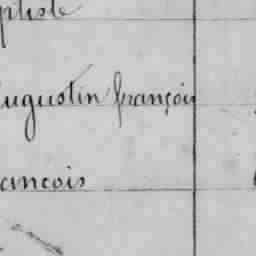 ptiste
ugustin françois
ancois